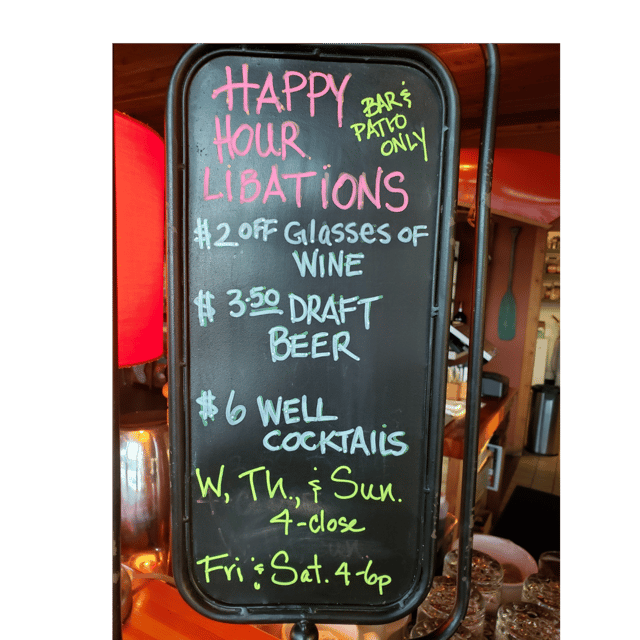 HAPPY
HOUR
LiBATiONS
BAR &
PATIO
ONLY
$2 OFF Glasses OF
WINE
$ 3.50 DRAFT
BEER
$6 WELL
COCKTAilS
W, Th., & Sun.
4-close
Fri & Sat. 4-6p